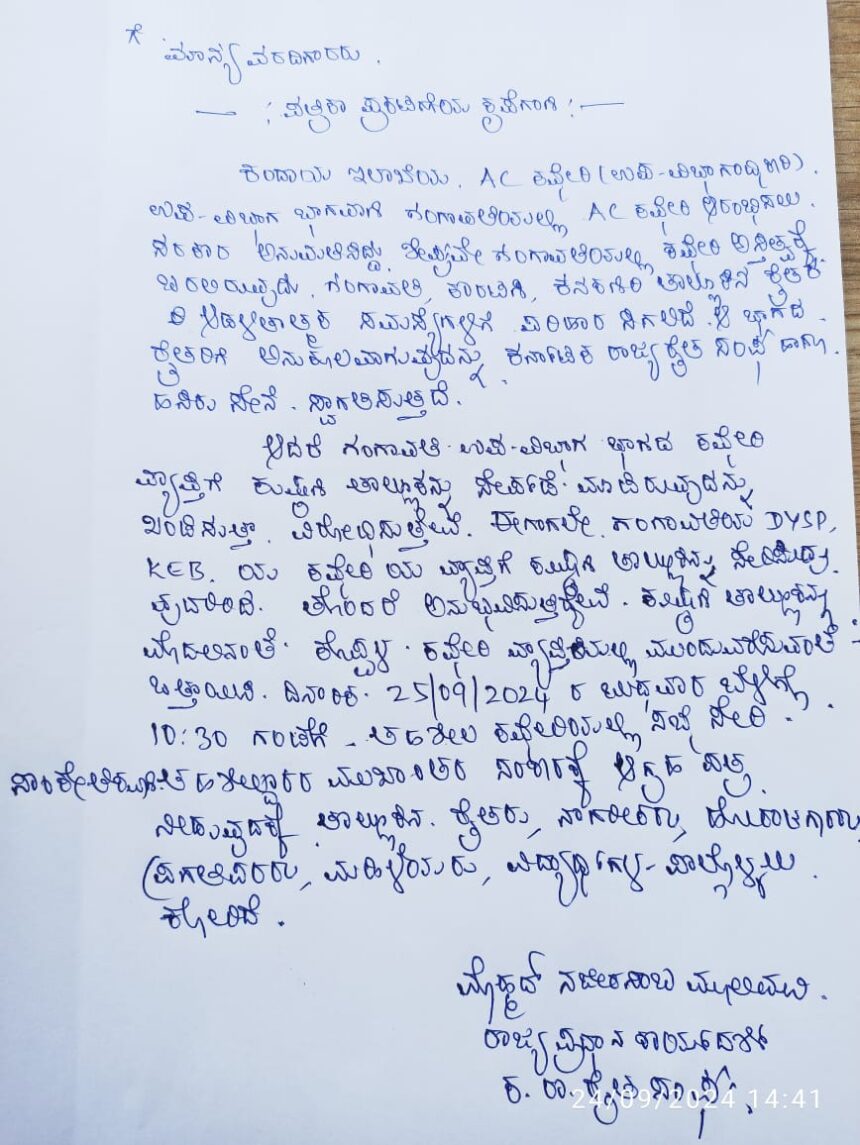 ಗೆ
ಮಾನ್ಯ ವರದಿಗಾರರು.
: ಪತ್ರಿಕಾ ಪ್ರಕಟಣೆಯ ಕೃಪೆಗಾಗಿ :
ಕಂದಾಯ ಇಲಾಖೆಯ. AC ಕಛೇರಿ (ಉಪ-ವಿಭಾಗಾಧಿಕಾರಿ).
ಉಪ-ವಿಭಾಗ ಭಾಗವಾಗಿ ಗಂಗಾವತಿಯಲ್ಲಿ AC ಕಛೇರಿ ಆರಂಭಿಸಲು.
ಸರಕಾರ ಅನುಮತಿಸಿದ್ದು. ಶೀಘ್ರವೇ ಗಂಗಾವತಿಯಲ್ಲಿ ಕಛೇರಿ ಅಸ್ತಿತ್ವಕ್ಕೆ
ಬರಲಿರುವುದು. ಗಂಗಾವತಿ, ಕಾರಟಗಿ, ಕನಕಗಿರಿ ತಾಲ್ಲೂಕಿನ ರೈತರ
ಆಡಳಿತಾತ್ಮಕ ಸಮಸ್ಯೆಗಳಿಗೆ ಪರಿಹಾರ ಸಿಗಲಿದೆ. ಆ ಭಾಗದ
ರೈತರಿಗೆ ಅನುಕೂಲವಾಗುವುದನ್ನು ಕರ್ನಾಟಕ ರಾಜ್ಯ ರೈತ ಸಂಘ ಹಾಗೂ
ಹಸಿರು ಸೇನೆ. ಸ್ವಾಗತಿಸುತ್ತದೆ.
ಆದರೆ ಗಂಗಾವತಿ ಉಪ-ವಿಭಾಗ ಭಾಗದ ಕಛೇರಿ
ವ್ಯಾಪ್ತಿಗೆ ಕುಷ್ಟಗಿ ತಾಲ್ಲೂಕನ್ನು ಸೇರ್ಪಡೆ ಮಾಡಿರುವುದನ್ನು
ಖಂಡಿಸುತ್ತಾ. ವಿರೋಧಿಸುತ್ತೇವೆ. ಈಗಾಗಲೇ ಗಂಗಾವತಿಯ DYSP,
KEB. ಯ ಕಛೇರಿಯ ವ್ಯಾಪ್ತಿಗೆ ಕುಷ್ಟಗಿ ತಾಲ್ಲೂಕನ್ನು ಸೇರಿಸಿದ್ದು
ವುದರಿಂದ. ತೊಂದರೆ ಅನುಭವಿಸುತ್ತಿದ್ದೇವೆ. ಕುಷ್ಟಗಿ ತಾಲ್ಲೂಕನ್ನು
ಮೊದಲಿನಂತೆ ಕೊಪ್ಪಳ ಕಛೇರಿ ವ್ಯಾಪ್ತಿಯಲ್ಲಿ ಮುಂದುವರೆಸುವಂತೆ -
ಒತ್ತಾಯಿಸಿ. ದಿನಾಂಕ. 25/09/2024 ರ ಬುಧವಾರ ಬೆಳಿಗ್ಗೆ
10:30 ಗಂಟೆಗೆ - ತಹಶೀಲ ಕಛೇರಿಯಲ್ಲಿ ಸಭೆ ಸೇರಿ.
ತಹಶೀಲ್ದಾರರ ಮುಖಾಂತರ ಸರಕಾರಕ್ಕೆ ಆಗ್ರಹ ಪತ್ರ
ನೀಡುವುದಕ್ಕೆ ತಾಲ್ಲೂಕಿನ. ರೈತರು, ನಾಗರೀಕರು, ಹೋರಾಟಗಾರರು
ಪ್ರಗತಿಪರರು, ಮಹಿಳೆಯರು, ವಿದ್ಯಾರ್ಥಿಗಳು - ಪಾಲ್ಗೊಳ್ಳಲು.
ಕೋರಿದೆ.
ಮೊಹ್ಮದ್ ನಜೀರಸಾಬ ಮೂಲಿಮನಿ.
ರಾಜ್ಯ ಪ್ರಧಾನ ಕಾರ್ಯದರ್ಶಿ
ಕ. ರಾ. ರೈತ ಸಂಘ.
24/09/2024 14:41